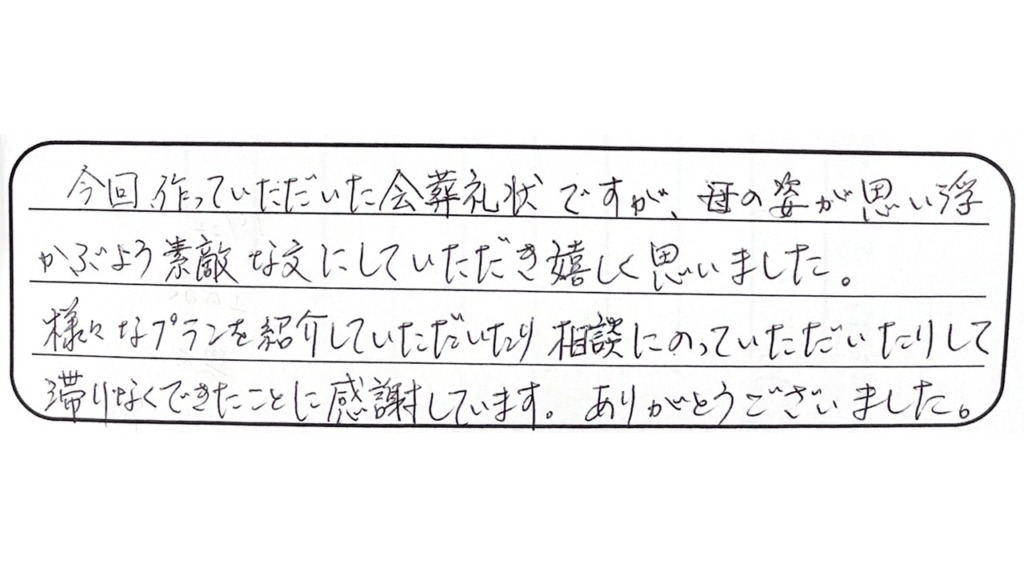 今回、作っていただいた会葬礼状ですが、母の姿が思い浮
かぶよう素敵な文にしていただき嬉しく思いました。
様々なプランを紹介していただいたり相談にのっていただいたりして
滞りなくできたことに感謝しています。ありがとうございました。